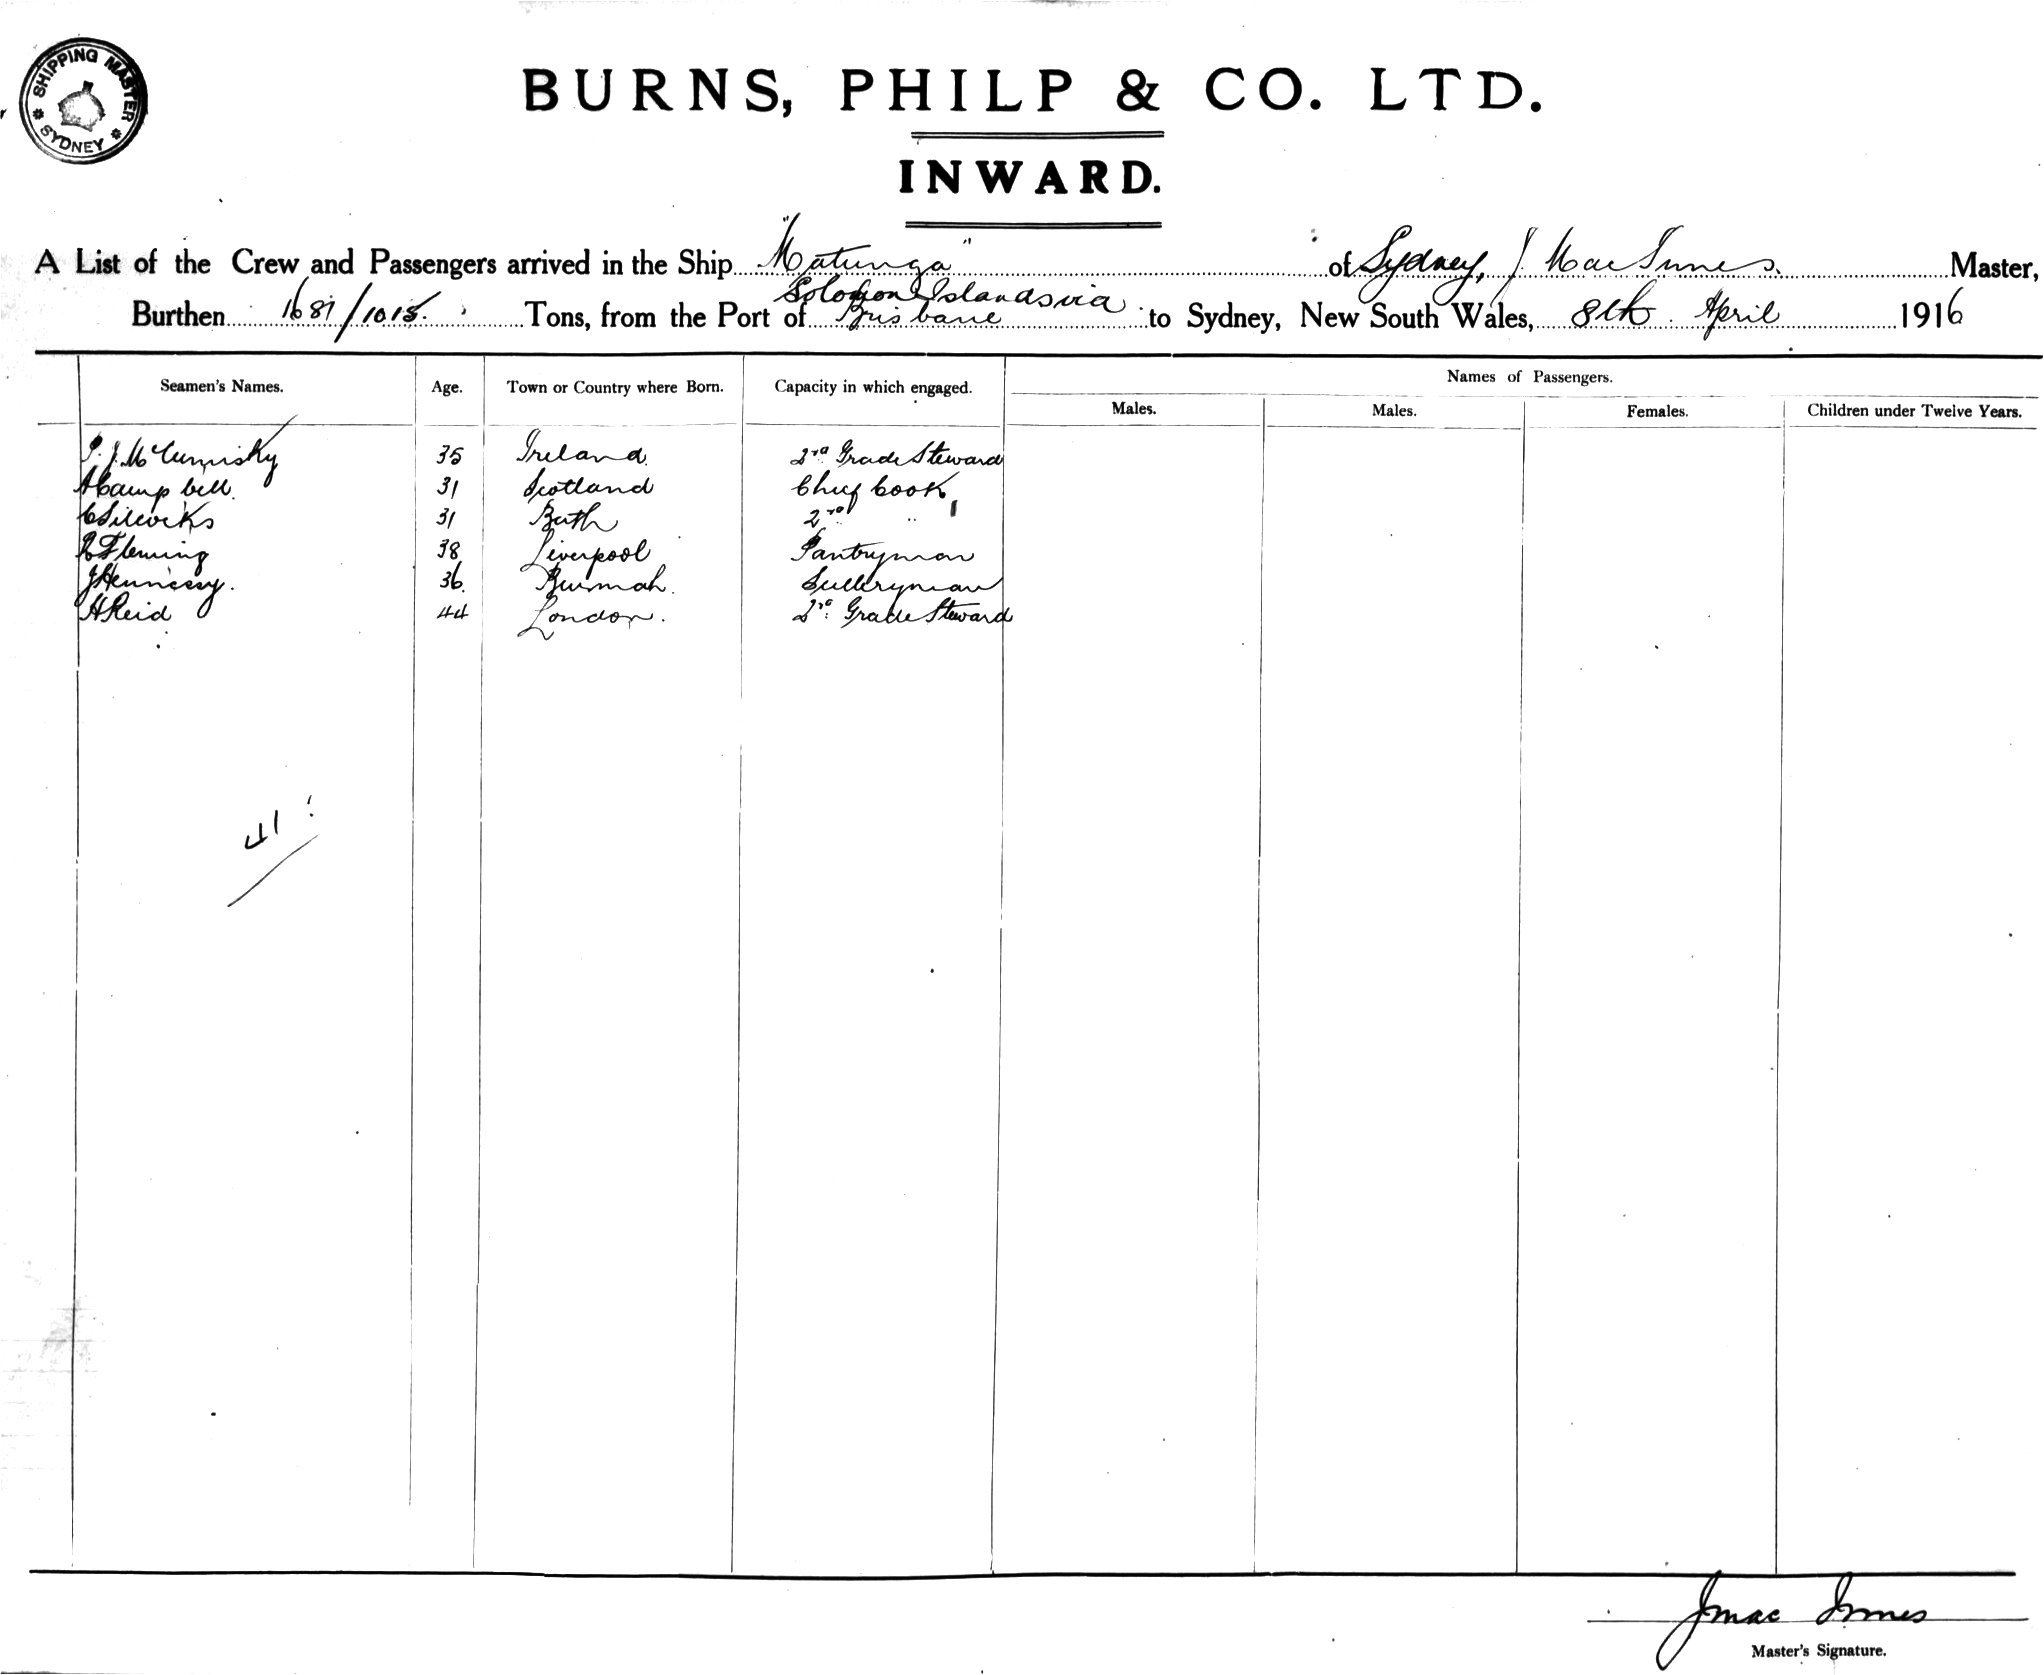 SHIPPING MASTER
SYDNEY
BURNS, PHILP & CO. LTD.
INWARD.
A List of the Crew and Passengers arrived in the Ship "Matunga" of Sydney, J MacInnes. Master,
Solomon Islands via
Burthen 1687/1015. Tons, from the Port of Brisbane to Sydney, New South Wales, 8th April 1916
Seamen's Names. Age. Town or Country where Born. Capacity in which engaged. Names of Passengers.
Males. Males. Females. Children under Twelve Years.
P. J. McCumisky 35 Ireland. 2nd Grade Steward
A Campbell. 31 Scotland Chief Cook
C Silcocks 31 Bath 2nd "
R Fleming 38 Liverpool Pantryman
J Hennessy. 36. Burmah. Sculleryman
H Reid 44 London. 2nd Grade Steward
41
J Mac Innes
Master's Signature.